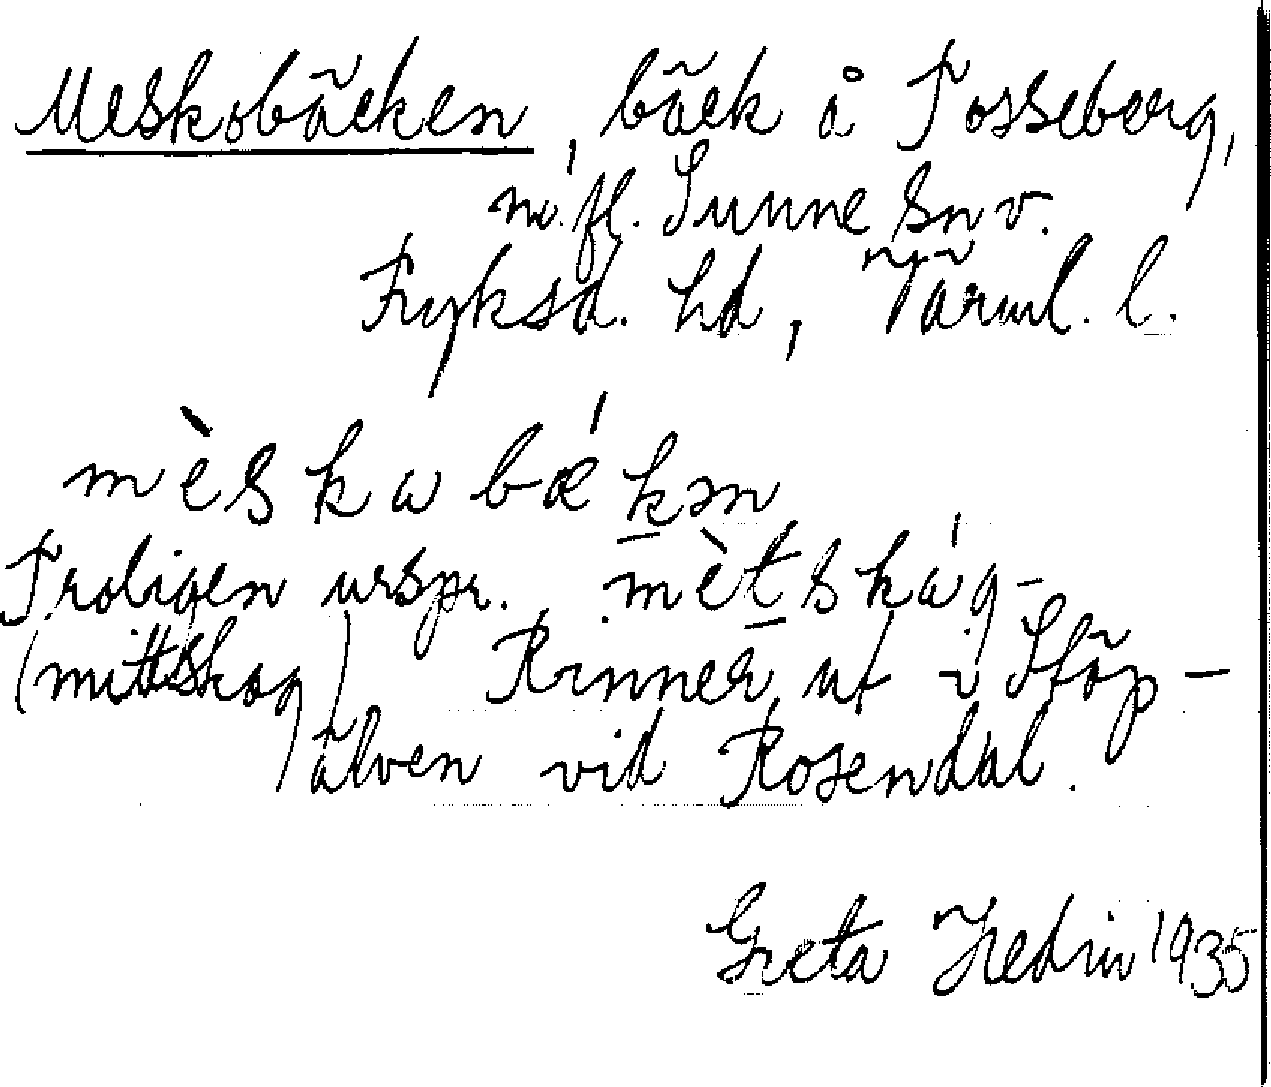 Meskobäcken, bäck å Tosseberg,
m. fl. Sunne sn v.
Fryksd. hd, Värml. l.
mèskωbǽkən
Troligen urspr. mètskώg-
(mittskog) Rinner ut i Stöp-
älven vid Rosendal.
Greta Hedin 1935